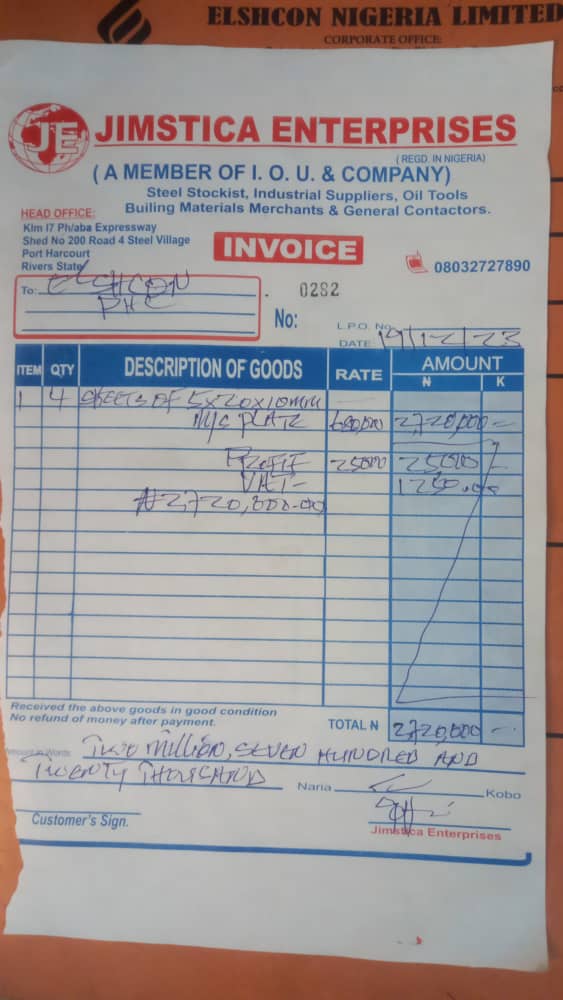 ELSHCON NIGERIA LIMITED
CORPORATE OFFICE:
JE
JIMSTICA ENTERPRISES
(REGD. IN NIGERIA)
( A MEMBER OF I. O. U. & COMPANY)
Steel Stockist, Industrial Suppliers, Oil Tools
Builing Materials Merchants & General Contactors.
HEAD OFFICE:
Klm I7 Ph/aba Expressway
Shed No 200 Road 4 Steel Village
Port Harcourt
Rivers State
INVOICE
08032727890
To: ELSHCON
PHC
0282
No:
L.P.O. No
DATE 19/12/23
ITEM QTY DESCRIPTION OF GOODS RATE AMOUNT
₦ K
1 4 SHEETS OF 5x20x10mm
M/S PLATE 680,000 2,720,000 =
25000 25000
VAT- 1250.00
₦2,720,000.00
Received the above goods in good condition
No refund of money after payment.
TOTAL ₦ 2720,000 -
Amount in Words Two Million, SEVEN HUNDRED AND
TWENTY THOUSAND Naria Kobo
Customer's Sign.
Jimstica Enterprises